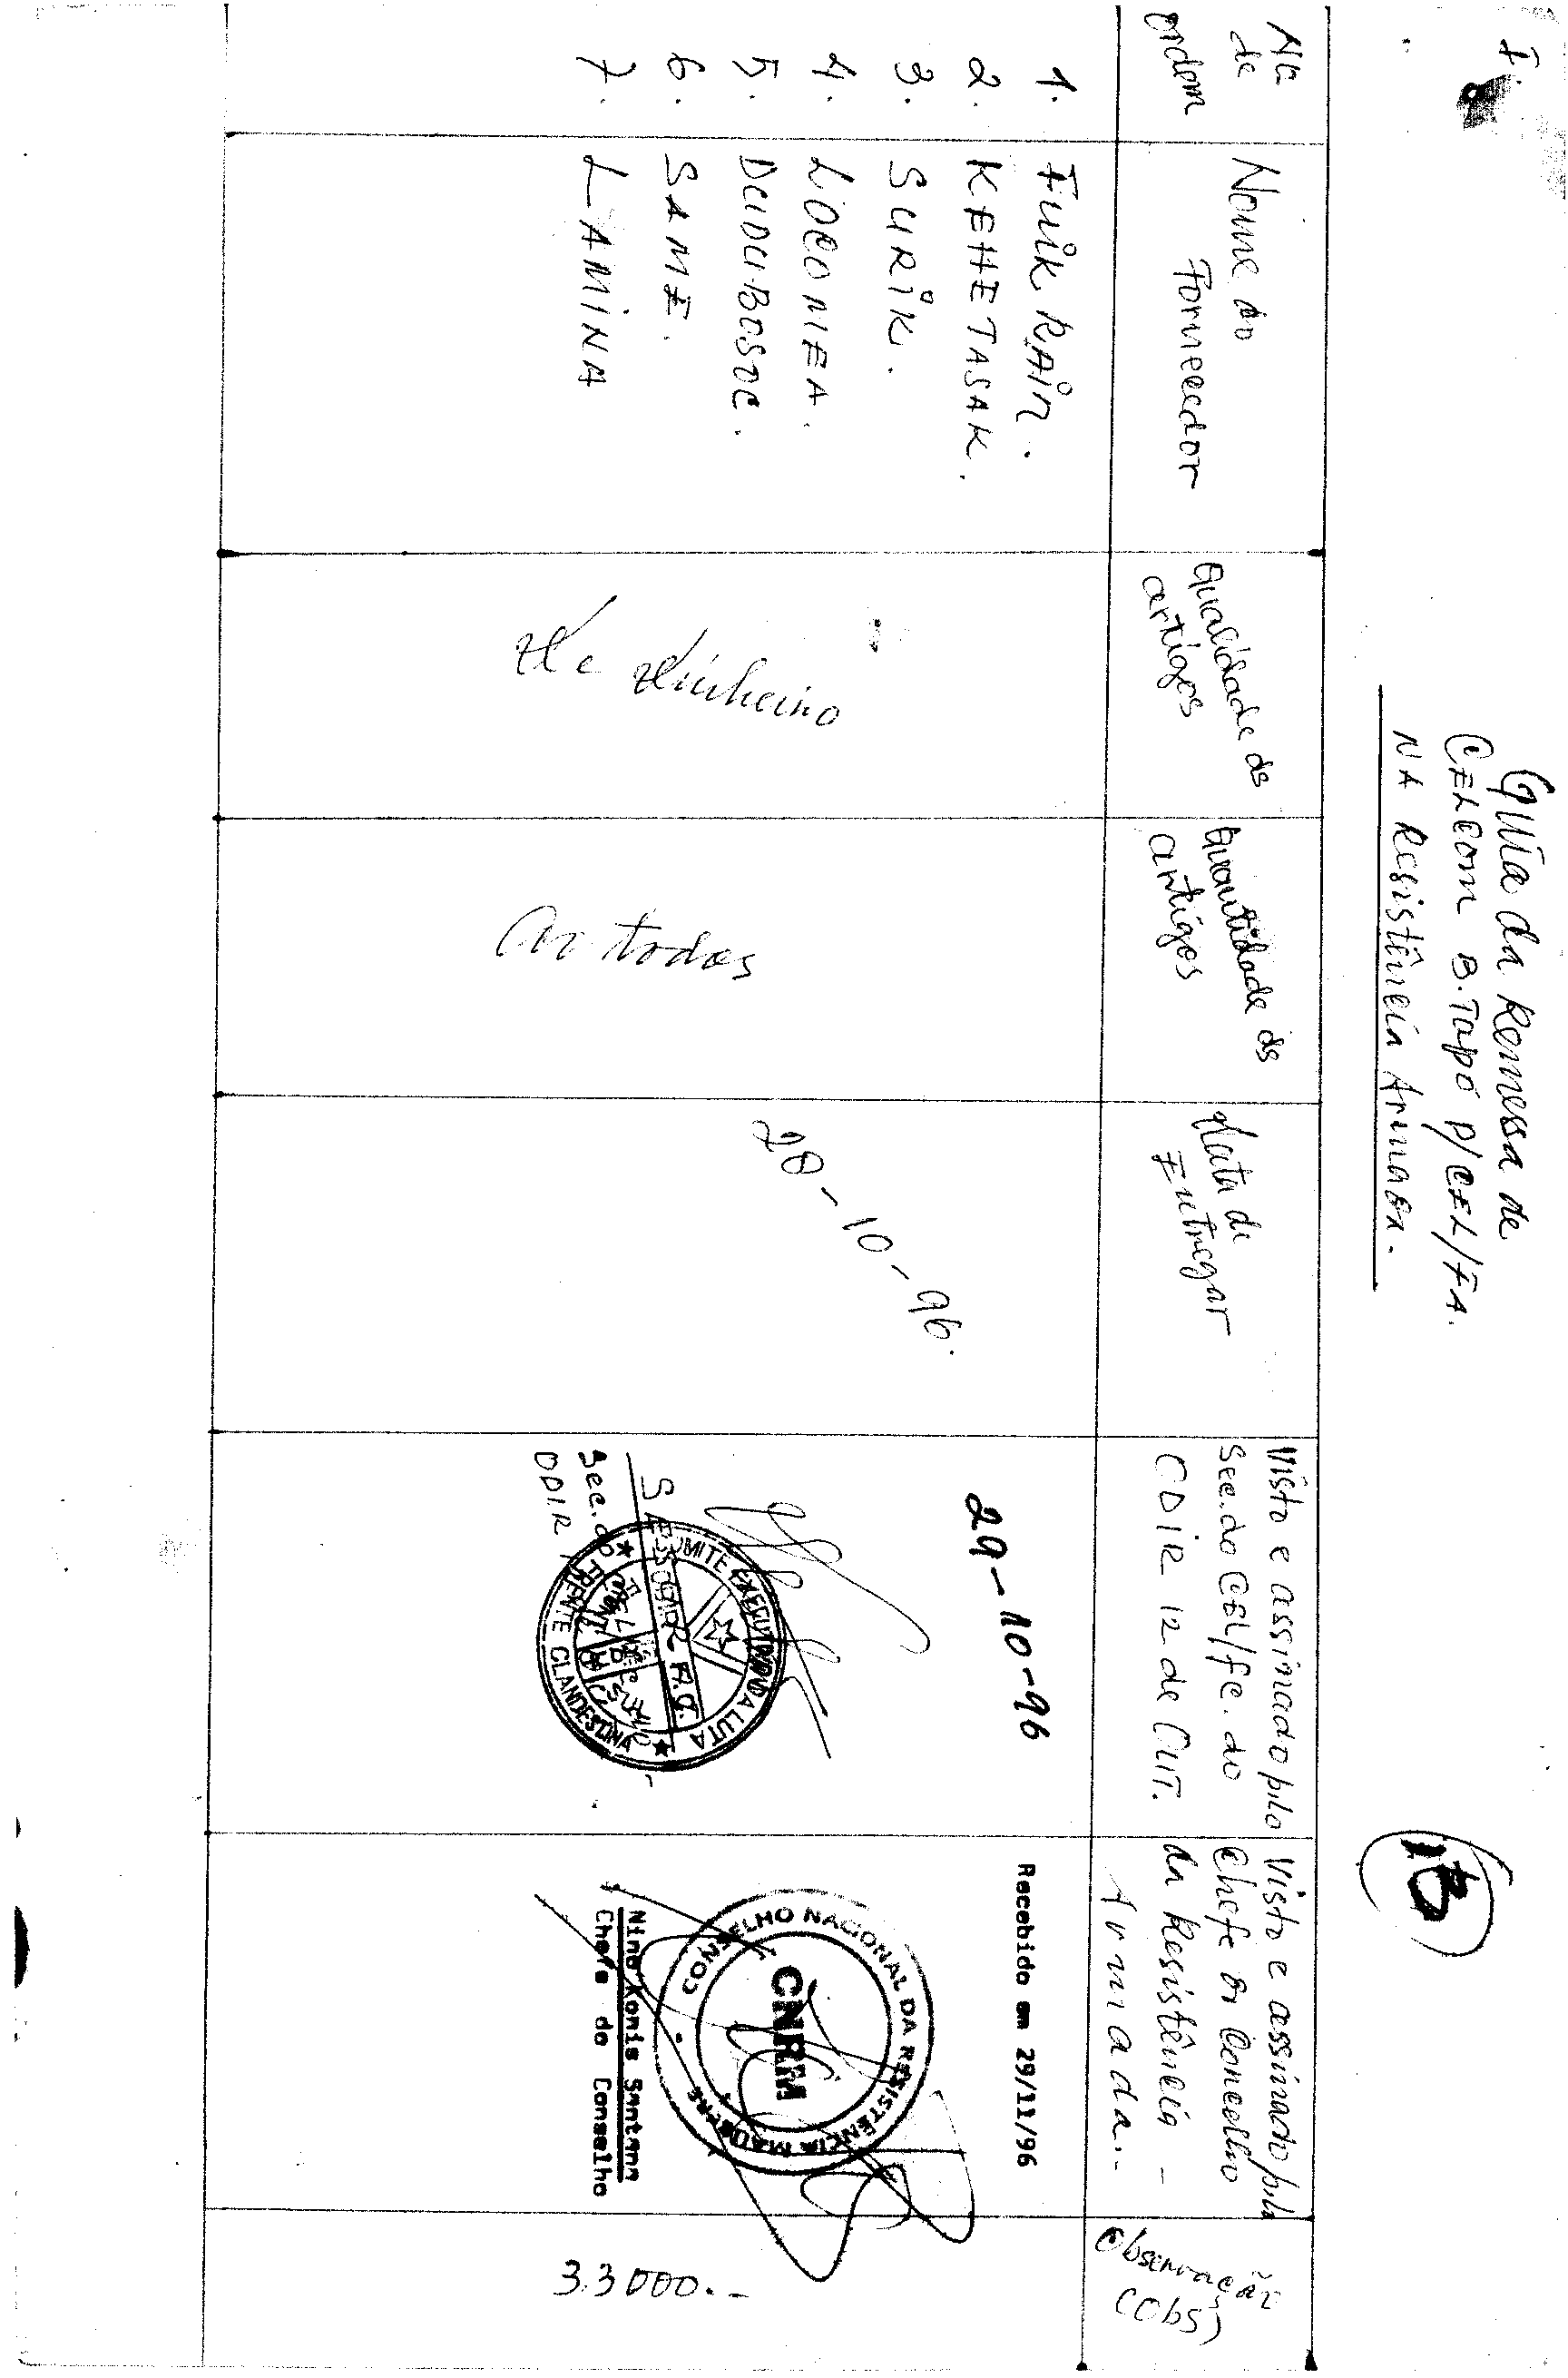 I.
Guia da Remessa de
CELCOM B. TAPÓ P/CEL/FA.
NA Resistência Armada.-
13
Nº
de
ordem
Nome do
Fornecedor
Qualidade ds
artigos
Quantidade ds
artigos
Data de
Entregar
Visto e assinado pelo
Sec. do CEL/FC. do
CDIR 12 de OUT.
Visto e assinado pelo
Chefe do Concelho
da Resistência -
Armada.-
Observação
(Obs)
1. FUIK RAIN.
2. KEHETASAK.
3. SURIK.
4. LOCOMEA.
5. DUDU-BOSOC.
6. SAME.
7. LAMINA
De Dinheiro
Ao todos
28-10-96.
29-10-96
COMITE EXECUTIVO DA LUTA
FRENTE CLANDESTINA
Sec. do
ODIR
Recebido em 29/11/96
CONSELHO NACIONAL DA RESISTÊNCIA MAUBERE
CNRM
Nino Konis Santana
Chefe do Conselho
33000.-